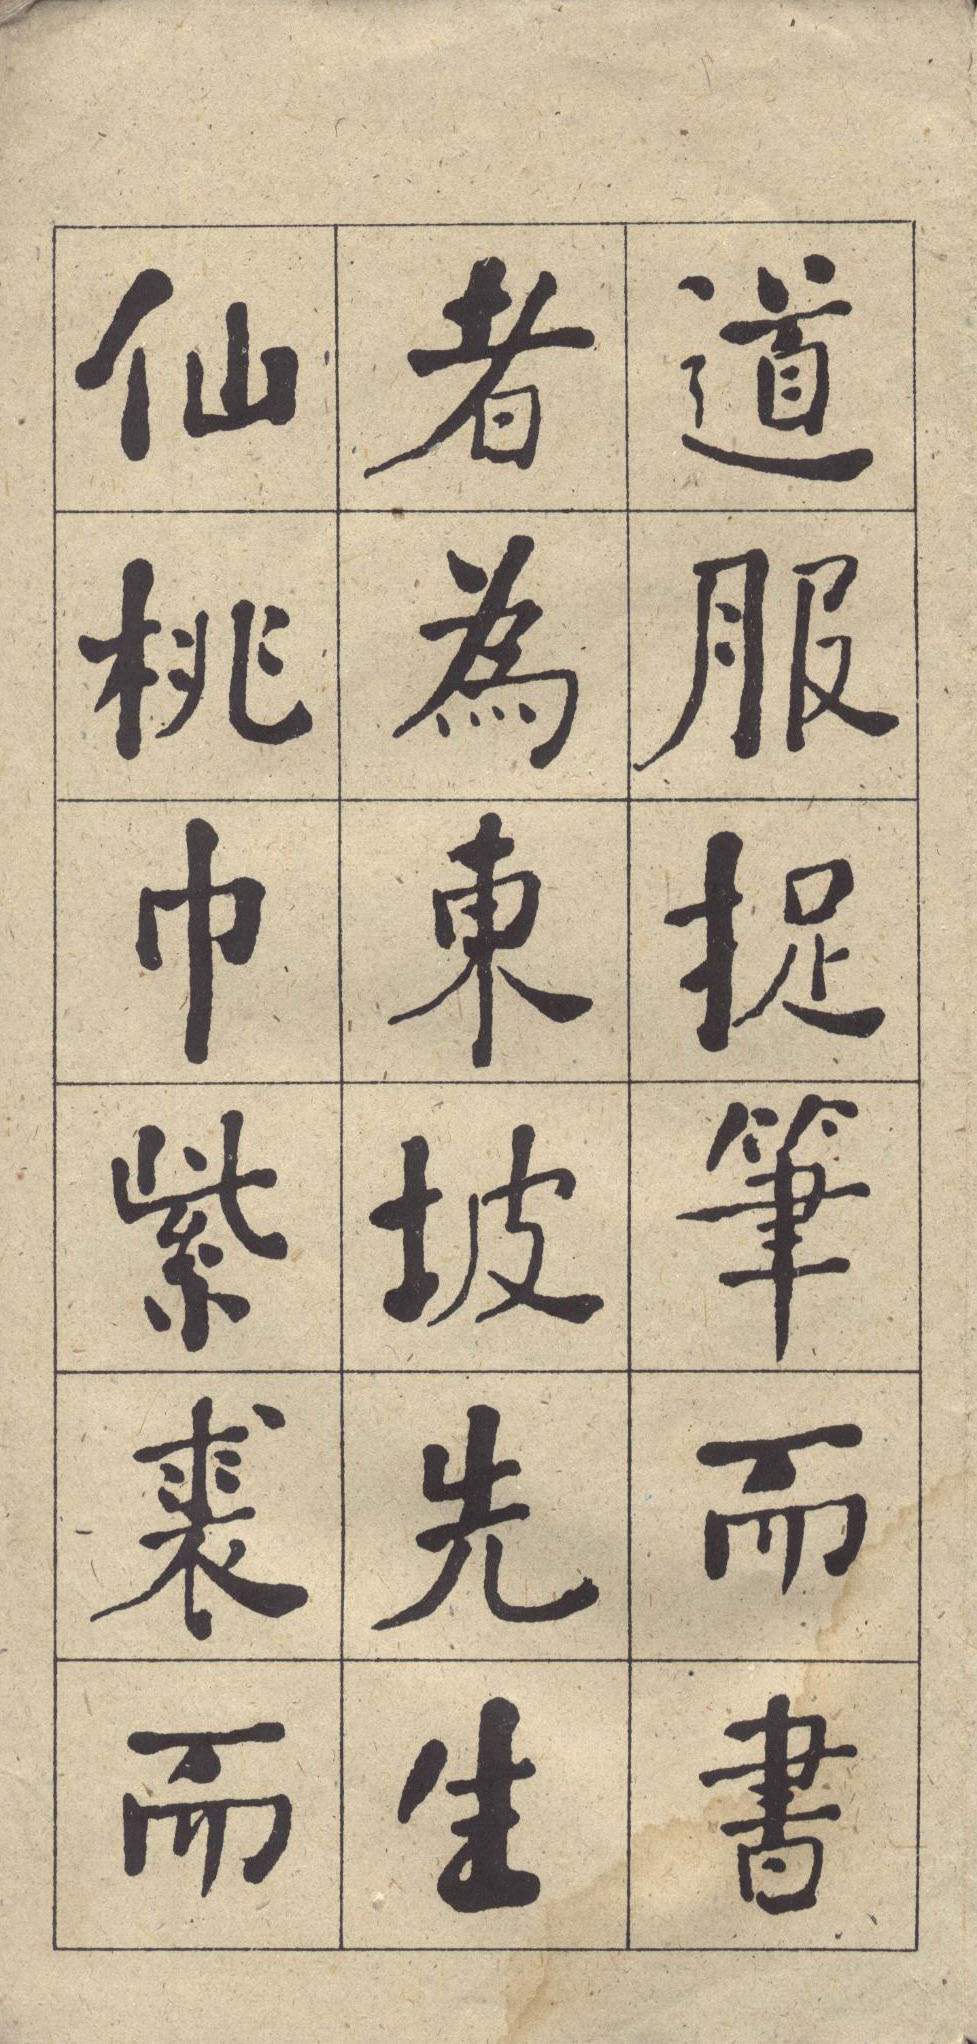 道服捉筆而書
者為東坡先生
仙桃巾紫裘而